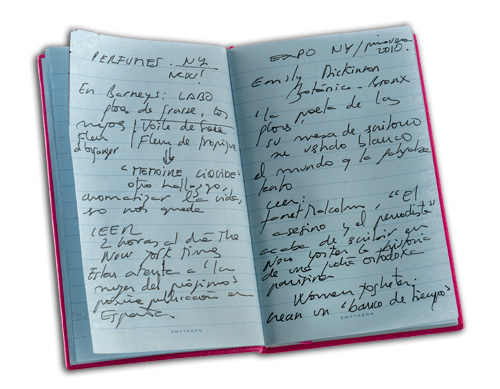 PERFUMES.. NY
NEW!
En Barneys: LABO
flores de
mejos / Voile de
Fleur
d'oranger / Fleur de
"MEMOIRE LIQUIDE"
otro hallazgo,
aromatizar la vida,
so nos quede
LEER
2 horas al día The
New York Times
Estar atenta a "La
mujer del prójimo"
próxima publicación en
España.
SMYTHSON
EXPO NY / 
2010.
Emily Dickinson
Botánica - Bronx
"la poeta de las
flores,
su mesa de
su vestido blanco
el mundo y la palabra
Leer:
Janet Malcolm, "El
asesino y el periodista"
acaba de escribir en
New Yorker la historia
de una judía ortodoxa
Women together
crean un "banco de tiempo"
SMYTHSON